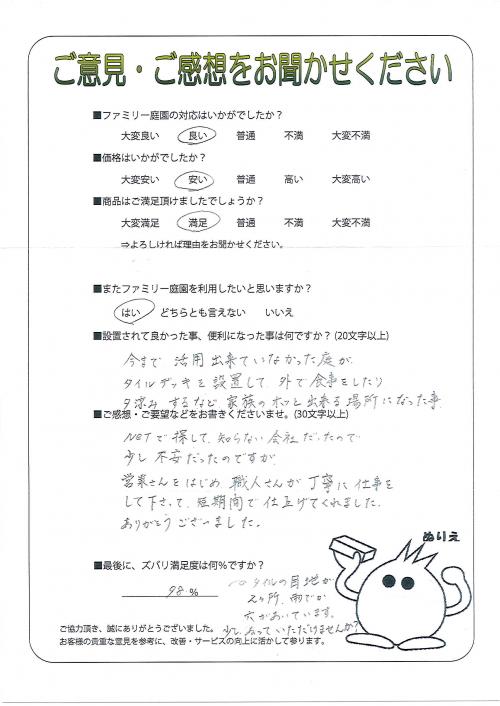 ご意見・ご感想をお聞かせください
■ファミリー庭園の対応はいかがでしたか？
大変良い 良い 普通 不満 大変不満
■価格はいかがでしたか？
大変安い 安い 普通 高い 大変高い
■商品はご満足頂けましたでしょうか？
大変満足 満足 普通 不満 大変不満
⇒よろしければ理由をお聞かせください。
■またファミリー庭園を利用したいと思いますか？
はい どちらとも言えない いいえ
■設置されて良かった事、便利になった事は何ですか？(20文字以上)
今まで 活用出来ていなかった庭が、
タイルデッキを設置して、外で食事をしたり
夕涼みするなど、家族のホッと出来る場所になった事
■ご感想・ご要望などをお書きくださいませ。(30文字以上)
NETで探して、知らない会社だったので
少し不安だったのですが、
営業さんをはじめ、職人さんが丁寧に仕事を
して下さって、短期間で仕上げてくれました。
ありがとうございました。
ぬりえ
■最後に、ズバリ満足度は何％ですか？
98 %
タイルの目地が
2ヶ所、雨でか
穴があいています。
少し 下さっていただけませんか？
ご協力頂き、誠にありがとうございました。
お客様の貴重な意見を参考に、改善・サービスの向上に活かして参ります。